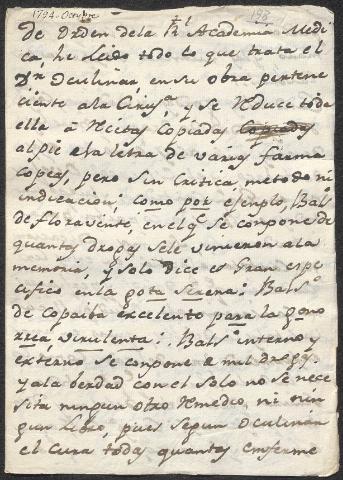 1794-Octubre
De Orden dela Rl Academia Medi
ca, he Leido todo lo que trata el
Dr Oculinar, en su obra pertene
ciente ala Cirugª, y se Reduce toda
ella â Recetas Copiadas Copiadas
al pie ela letra de varias farma
copeas, pero sin Critica, metodo ni
indicacion, como por ejemplo, Balsº
de floravento, en el qe se conpone de
quantas drogas sele vinieron ala
memoria, y solo dice es Gran espe
cifico en la gota serena: Balsº
de Copaiba excelente para la gono
rrea virulenta: Balsº interno y
externo se conpone e mil drogas.
y ala berdad con el solo no se nece
sita ningun otro Remedio, ni nin
gun Libro, pues segun Oculinar
el cura todas quantas emferme